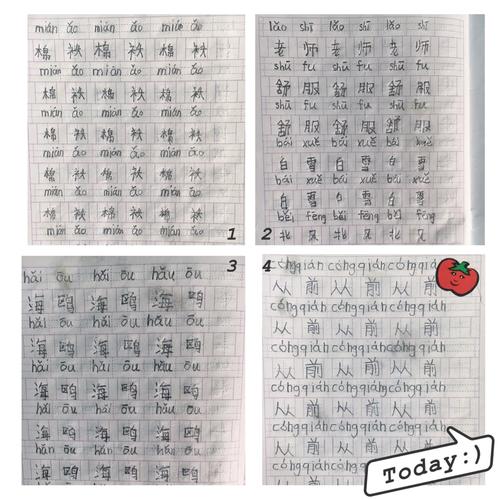 mián ǎo mián ǎo mián ǎo
棉 袄 棉 袄 棉 袄
mián ǎo mián ǎo mián ǎo
棉 袄 棉 袄 棉 袄
mián ǎo mián ǎo mián ǎo
棉 袄 棉 袄 棉 袄
mián ǎo mián ǎo mián ǎo
棉 袄 棉 袄 棉 袄
mián ǎo mián ǎo mián ǎo
棉 袄 棉 袄 棉 袄
mián ǎo mián ǎo mián ǎo
1
lǎo shī lǎo shī lǎo shī
老 师 老 师 老 师
shū fu shū fu shū fu
舒 服 舒 服 舒 服
shū fu shū fu shū fu
舒 服 舒 服 舒 服
bái xuě bái xuě bái xuě
白 雪 白 雪 白 雪
bái xuě bái xuě bái xuě
白 雪 白 雪 白 雪
běi fēng běi fēng běi fēng
北 风 北 风 北 风
2
3
hǎi ōu hǎi ōu hǎi ōu
海 鸥 海 鸥 海 鸥
hǎi ōu hǎi ōu hǎi ōu
海 鸥 海 鸥 海 鸥
hǎi ōu hǎi ōu hǎi ōu
海 鸥 海 鸥 海 鸥
hǎi ōu hǎi ōu hǎi ōu
海 鸥 海 鸥 海 鸥
hǎi ōu hǎi ōu hǎi ōu
海 鸥 海 鸥 海 鸥
4
cóng qián cóng qián cóng qián
从 前 从 前 从 前
cóng qián cóng qián cóng qián
从 前 从 前 从 前
cóng qián cóng qián cóng qián
从 前 从 前 从 前
cóng qián cóng qián cóng qián
从 前 从 前 从 前
cóng qián cóng qián cóng qián
从 前 从 前 从 前
cóng qián
Today:)